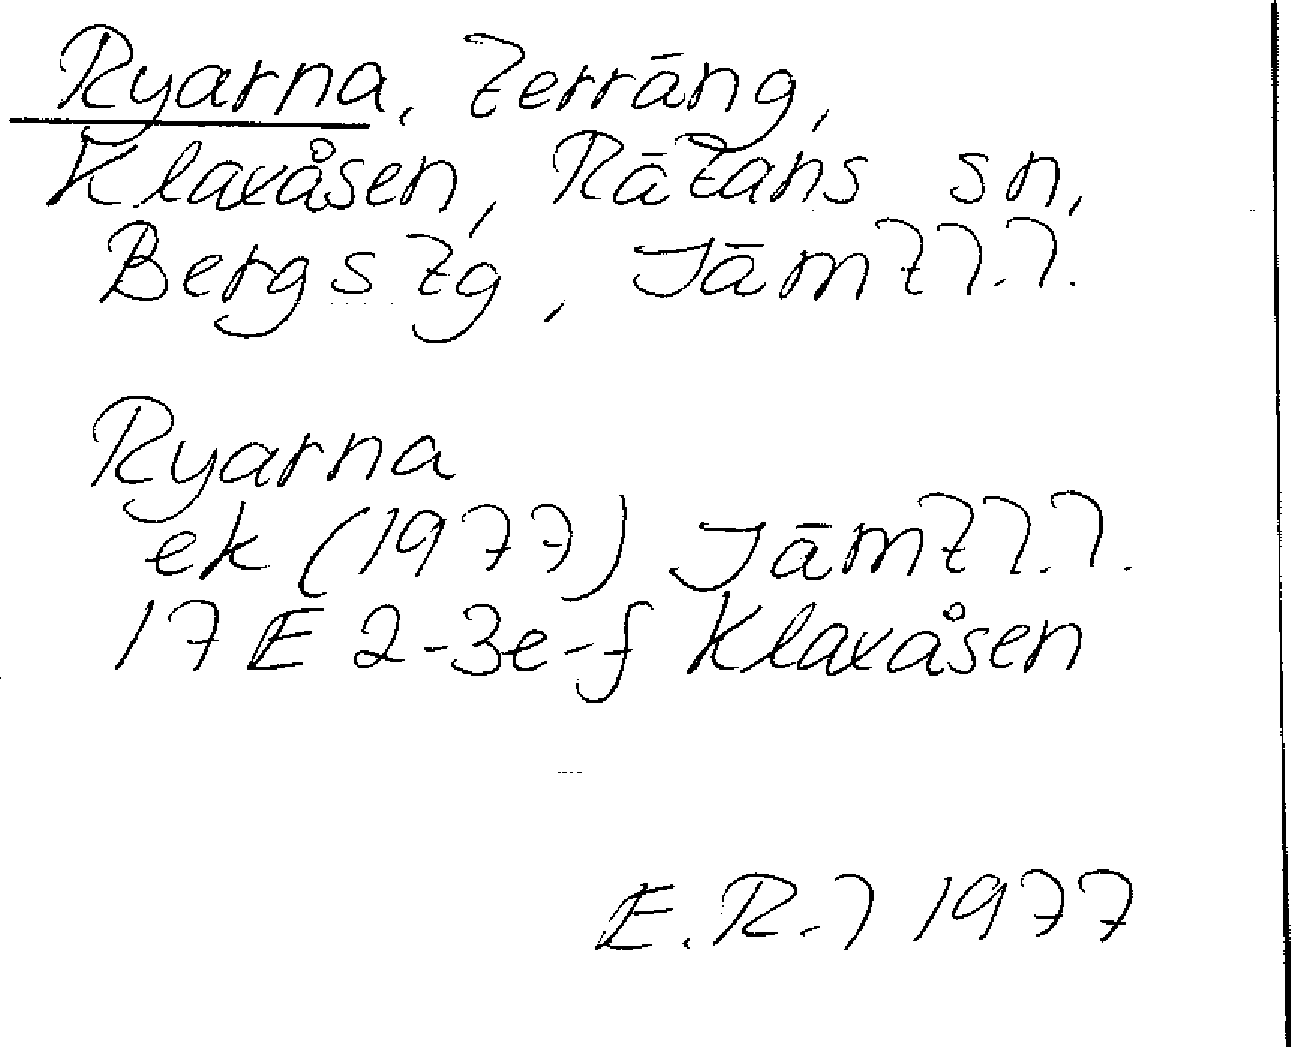 Ryarna, terräng,
Klaxåsen, Rätans sn,
Bergs tg, Jämtl.l.
Ryarna
ek (1977) Jämtl.l.
17 E 2-3e-f Klaxåsen
1977